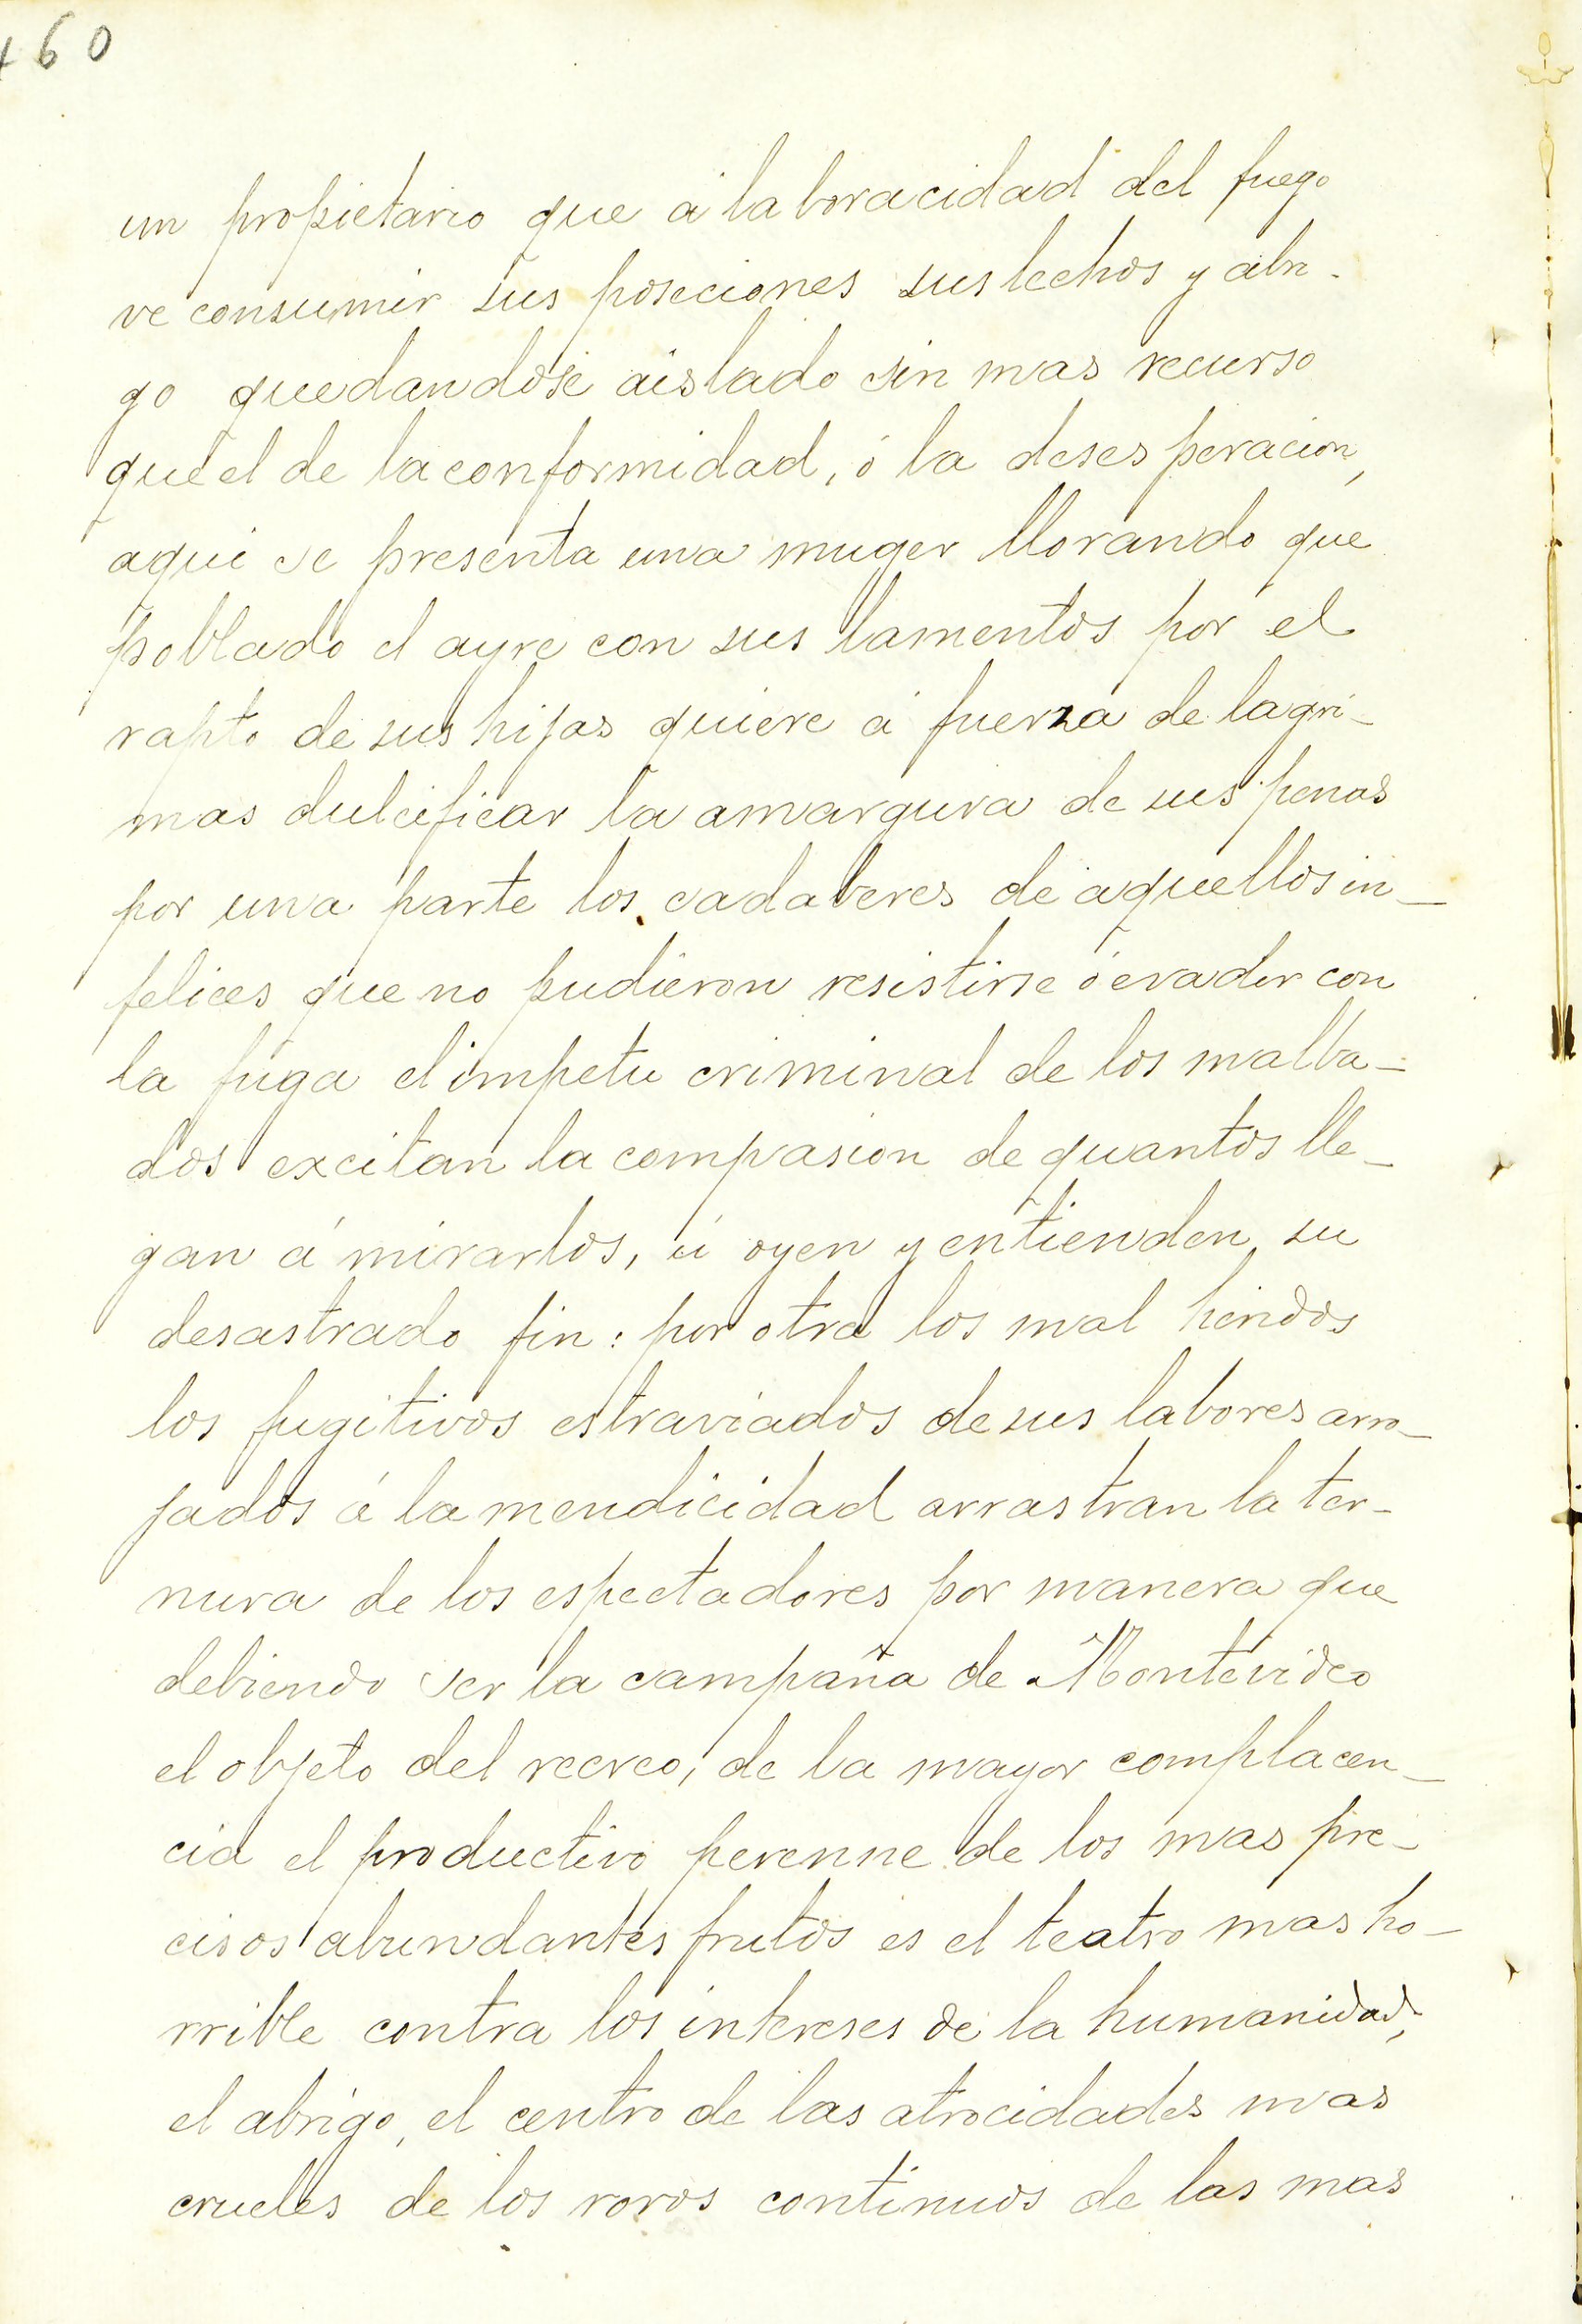 460
un propietario que á la boracidad del fuego
ve consumir sus poseciones sus lechos y abri-
go quedandose aislado sin mas recurso
que el de la conformidad, ó la desesperacion,
aqui se presenta una muger llorando que
poblado el ayre con sus lamentos por el
rapto de sus hijas quiere á fuerza de lagri-
mas dulcificar la amargura de sus penas
por una parte los cadaberes de aquellos in-
felices que no pudieron resistirse ó evadir con
la fuga el impetu criminal de los malba-
dos excitan la compasion de quantos lle-
gan á mirarlos, ú oyen y entienden su
desastrado fin: por otra los mal heridos
los fugitivos estraviados de sus labores arro-
jados á la mendicidad arrastran la ter-
nura de los espectadores por manera que
debiendo ser la campaña de Montevideo
el objeto del recreo, de la mayor complacen-
cia el productivo perenne de los mas pre-
cisos abundantes frutos es el teatro mas ho-
rrible contra los intereses de la humanidad,
el abrigo, el centro de las atrocidades mas
crueles de los roros continuos de las mas